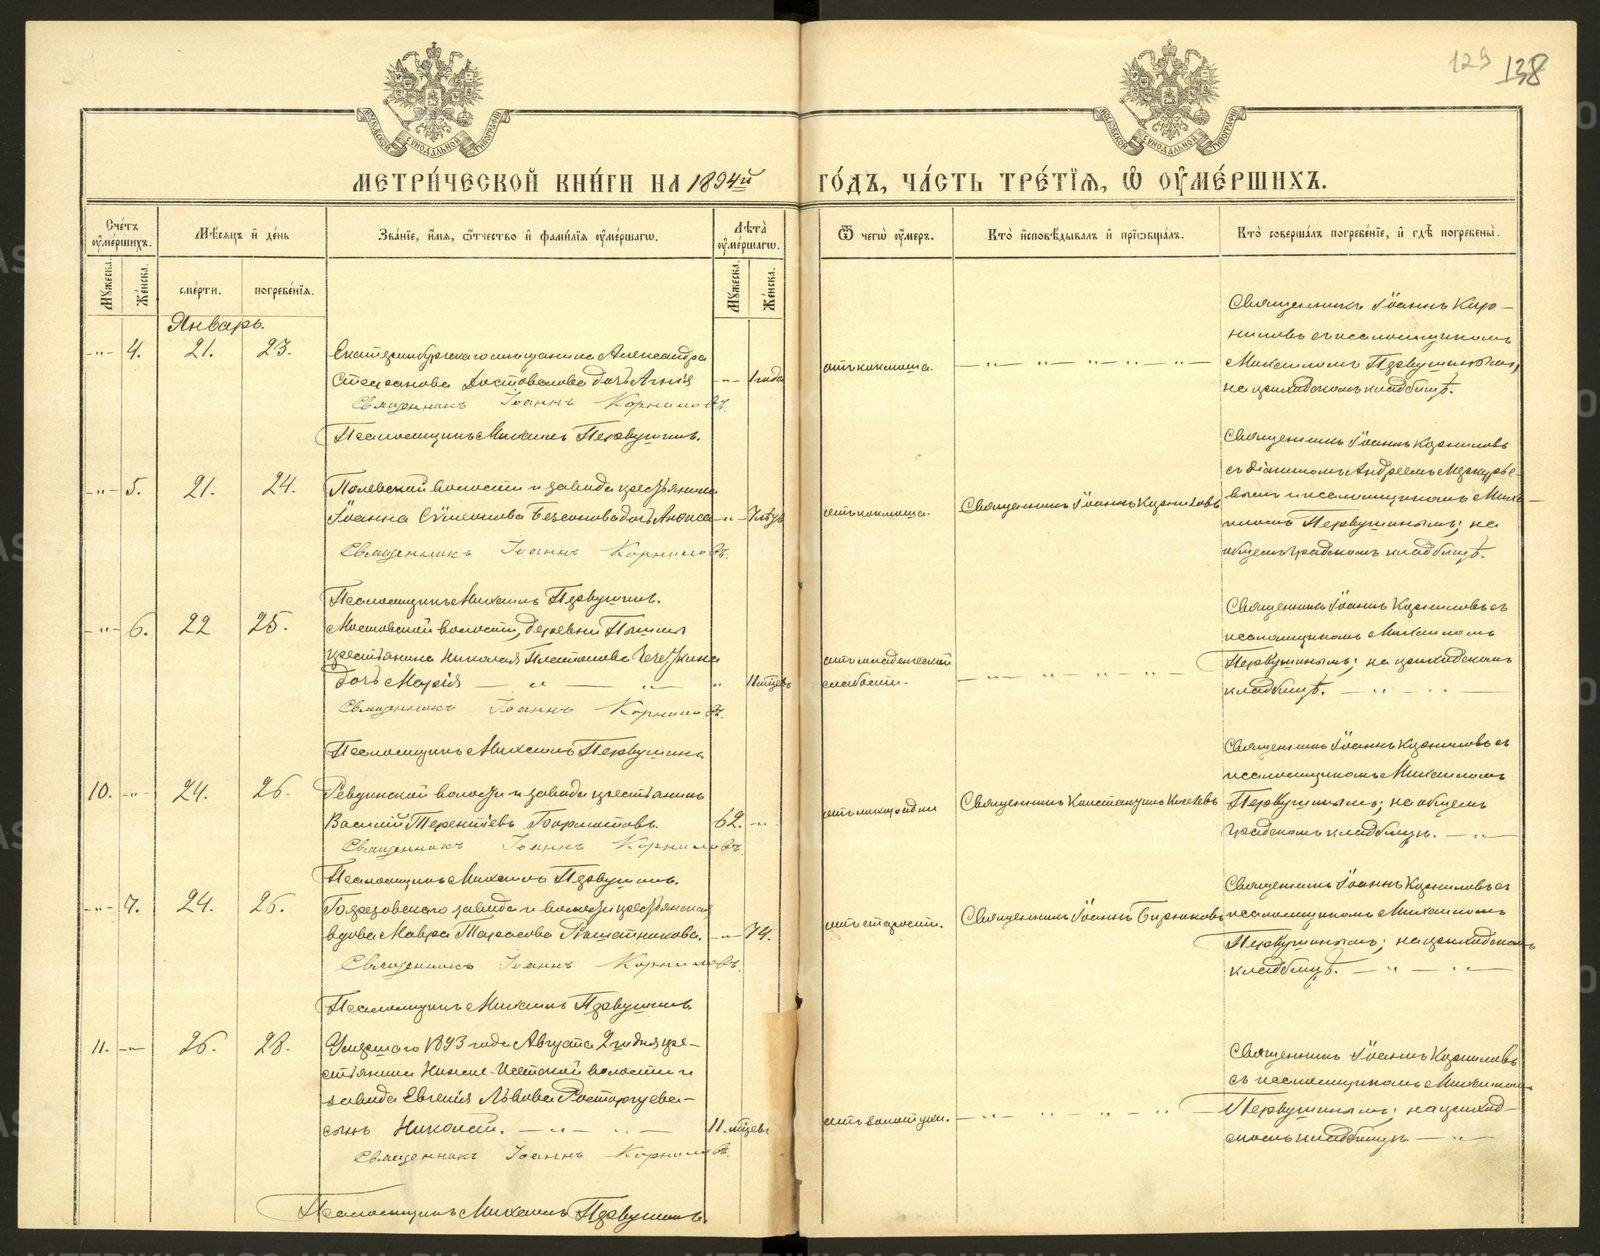 129 138
МОСКОВСКОЙ СѴНОДАЛЬНОЙ ТИПОГРАФІИ
МОСКОВСКОЙ СѴНОДАЛЬНОЙ ТИПОГРАФІИ
МЕТРИ́ЧЕСКОЙ КНИ́ГИ НА 1894й ГО́ДЪ, ЧА́СТЬ ТРЕ́ТІѦ, Ѡ҆ ОУ҆МЕ́РШИХЪ.
Сче́тъ оу҆ме́ршихъ.
Мѣ́сяцъ и҆ де́нь
Зва́нїе, и҆́мя, ѻ҆́тчество и҆ фами́лїя оу҆ме́ршагѡ.
Лѣ́та оу҆ме́ршагѡ.
Ѿ чегѡ̀ оу҆́меръ.
Кто̀ и҆сповѣ́дывалъ и҆ прїѡбща́лъ.
Кто̀ соверша́лъ погребе́нїе, и҆ гдѣ̀ погребены̀.
Мꙋ́жеска.
Же́нска.
сме́рти.
погребе́нїя.
Мꙋ́жеска.
Же́нска.
Январь.
-"- 4. 21. 23.
Екатеринбургскаго мѣщанина Александра
Степанова Достовалова дочь Агнія -"- 1 года
Священникъ Іоаннъ Корниловъ.
Псаломщикъ Михаилъ Первушинъ.
отъ коклюша.
Священникъ Іоаннъ Кор-
ниловъ съ псаломщикомъ
Михаиломъ Первушинымъ,
на приходскомъ кладбищѣ.
-"- 5. 21. 24.
Полевской волости и завода крестьянина
Іоанна Сѵмеонова Безсонова дочь Анѳиса -"- 7 лѣтъ
Священникъ Іоаннъ Корниловъ.
Псаломщикъ Михаилъ Первушинъ.
отъ коклюша.
Священникъ Іоаннъ Корниловъ
Священникъ Іоаннъ Корниловъ
съ діакономъ Андреемъ Меркурье-
вымъ и псаломщикомъ Миха-
иломъ Первушинымъ; на
общемъ градскомъ кладбищѣ.
-"- 6. 22 25.
Мостовской волости, деревни
крестьянина Николая Платонова
дочь Марія " 11 мцевъ
Священникъ Іоаннъ Корниловъ.
Псаломщикъ Михаилъ Первушинъ
отъ младенческой
слабости.
Священникъ Іоаннъ Корниловъ съ
псаломщикомъ Михаиломъ
Первушинымъ; на приходскомъ
кладбищѣ.
10. -"- 24. 26.
Ревдинской волости и завода крестьянинъ
Василій Терентіевъ 62. -"-
Священникъ Іоаннъ Корниловъ
Псаломщикъ Михаилъ Первушинъ.
отъ лихорадки
Священникъ Константинъ
Священникъ Іоаннъ Корниловъ съ
псаломщикомъ Михаиломъ
Первушинымъ; на общемъ
градскомъ кладбищѣ.
-"- 7. 24. 26.
завода и волости крестьянская
вдова Мавра Тарасова -"- 74.
Священникъ Іоаннъ Корниловъ.
Псаломщикъ Михаилъ Первушинъ
отъ старости.
Священникъ Іоаннъ Бирюковъ
Священникъ Іоаннъ Корниловъ съ
псаломщикомъ Михаиломъ
Первушинымъ; на приходскомъ
кладбищѣ.
11. -"- 26. 28.
Умершаго 1893 года Августа 2 го дня кре-
стьянина Нижне-Исетской волости и
завода Евгенія Львова Расторгуева
сынъ Николай. 11. мцевъ
Священникъ Іоаннъ Корниловъ.
Псаломщикъ Михаилъ Первушинъ.
Священникъ Іоаннъ Корниловъ
съ псаломщикомъ Михаиломъ
Первушинымъ; на приход-
скомъ кладбищѣ